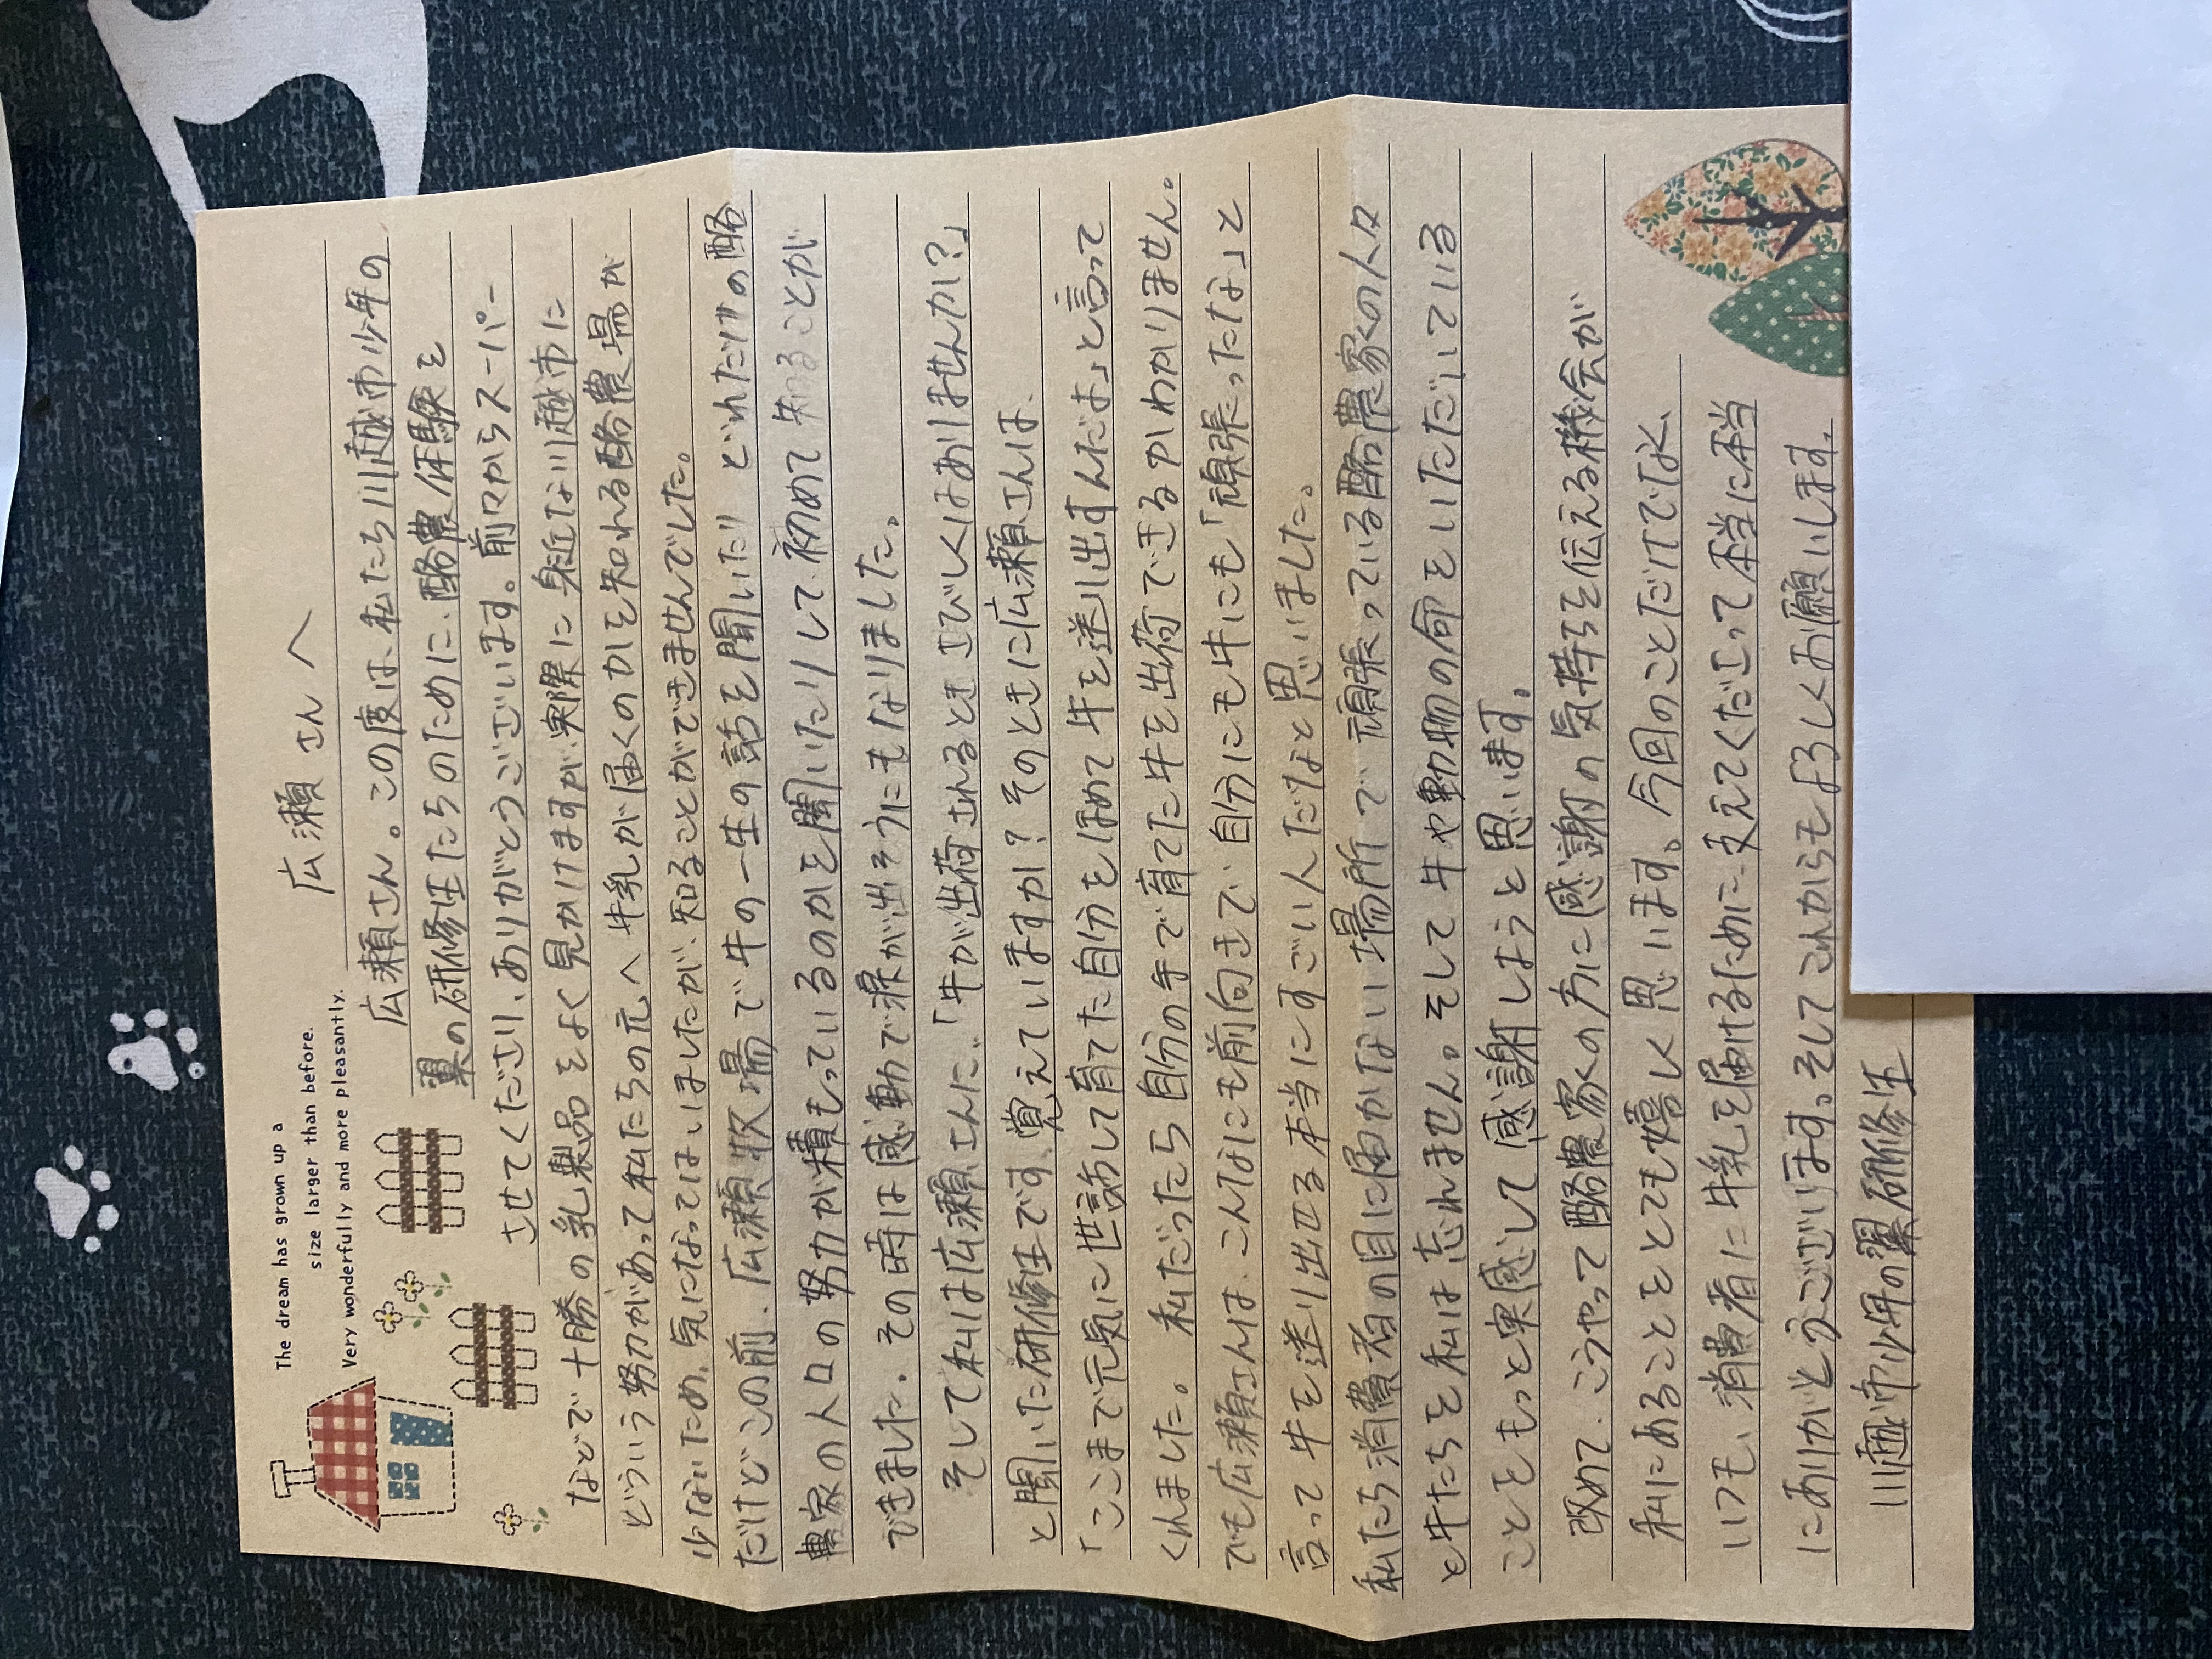 The dream has grown up a
size larger than before.
Very wonderfully and more pleasantly.
広瀬さんへ
広瀬さん。この度は、私たち川越市少年の
翼の研修生たちのために、酪農体験を
させてくださり、ありがとうございます。前々からスーパー
などで十勝の乳製品をよく見かけますが、実際に身近な川越市に
どういう努力があって私たちの元へ牛乳が届くのかを知れる酪農場が
少ないため、気になってはいましたが、知ることができませんでした。
だけどこの前、広瀬牧場で牛の一生の話を聞いたり どれだけの酪
農家の人々の努力が積もっているのかを聞いたりして、初めて知ることが
できました。その時は感動で涙が出そうにもなりました。
そして私は広瀬さんに、「牛が出荷されるとき さびしくはありませんか?」
と聞いた研修生です。覚えていますか?そのときに広瀬さんは、
「ここまで元気に世話して育てた自分をほめて牛を送り出すんだよ」と言って
くれました。私だったら自分の手で育てた牛を出荷できるかわかりません。
でも広瀬さんは、こんなにも前向きで、自分にも牛にも「頑張ったな」と
言って牛を送り出せる本当にすごい人だなと思いました。
私たち消費者の目に届かない場所で頑張っている酪農家の人々
と牛たちを私は忘れません。そして牛や動物の命をいただいている
ことをもっと実感して感謝しようと思います。
改めて、こうやって酪農家の方に感謝の気持ちを伝える機会が
私にあることをとても嬉しく思います。今回のことだけでなく、
いつも、消費者に牛乳を届けるために、支えてくださって本当に本当
にありがとうございます。そしてこれからもよろしくお願いします。
川越市少年の翼研修生